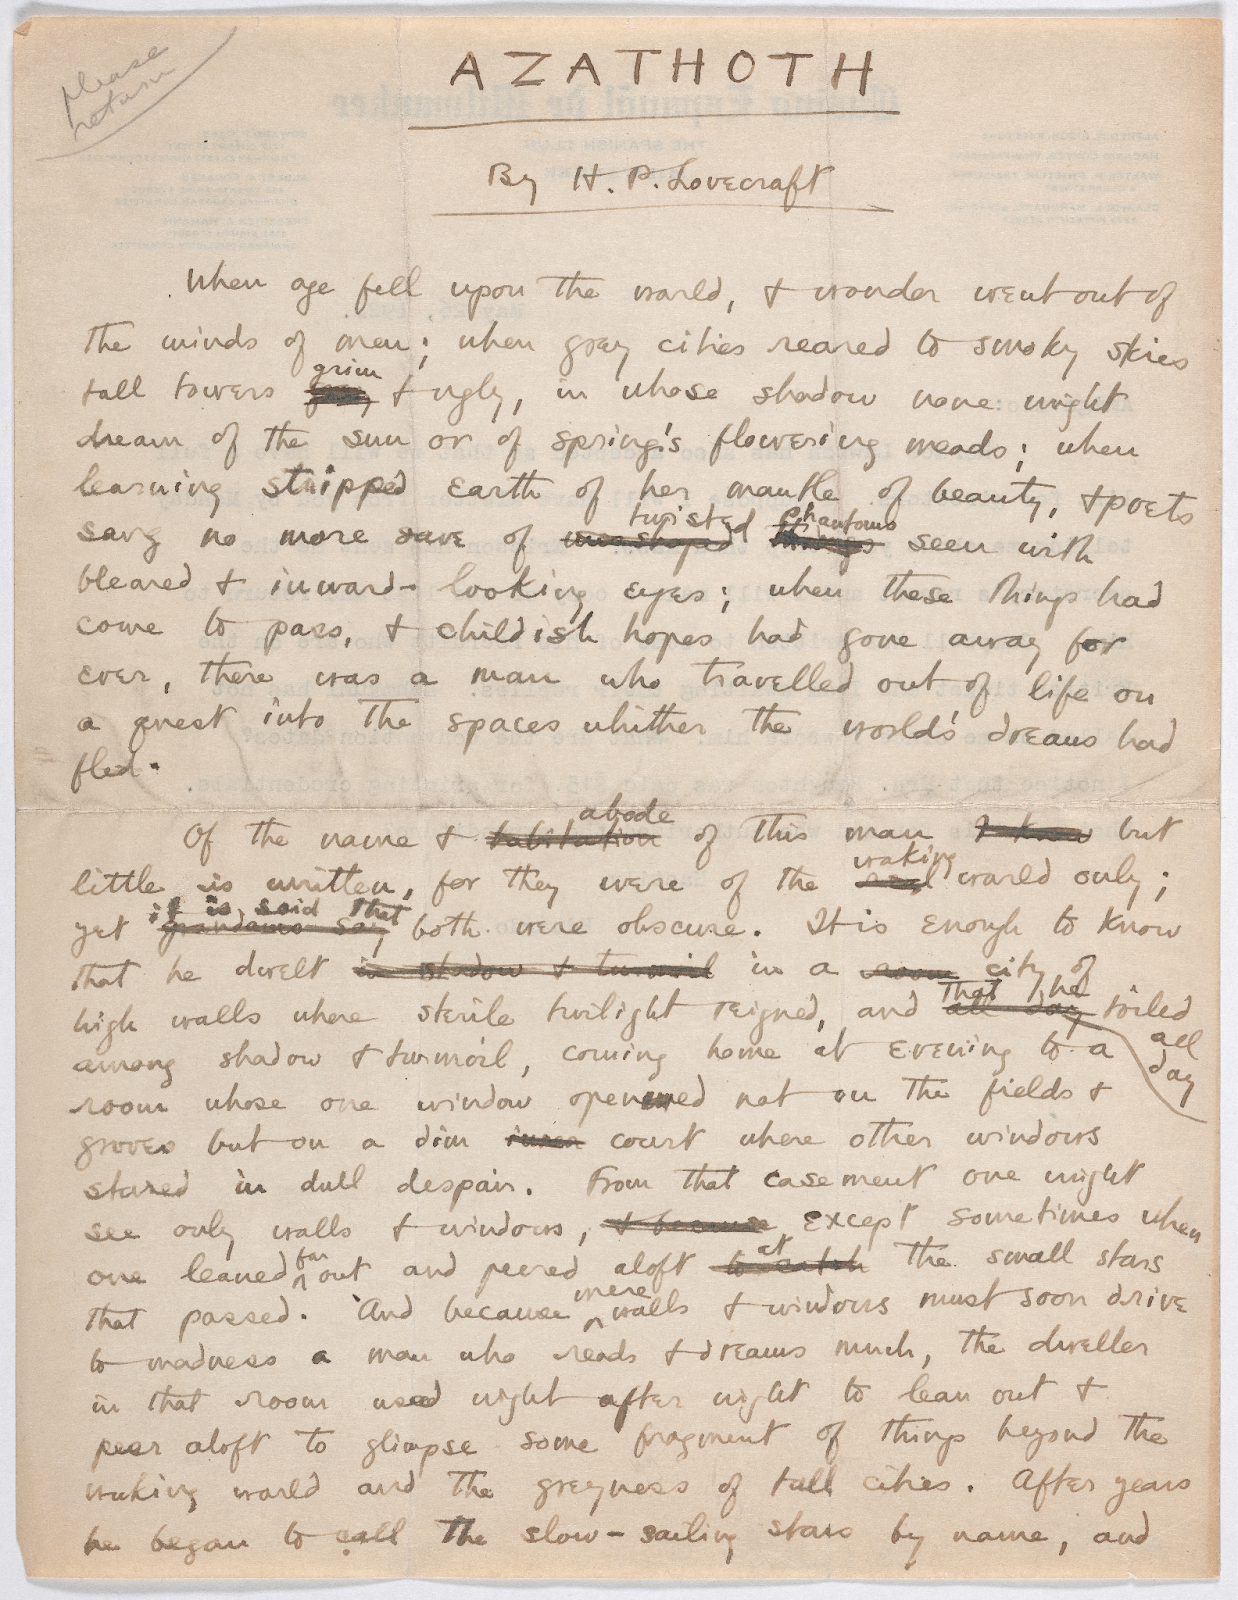 please
return
AZATHOTH
By H. P. Lovecraft
When age fell upon the world, & wonder went out of
the minds of men; when grey cities reared to smoky skies
grim
tall towers & ugly, in whose shadow none might
dream of the sun or of spring's flowering meads; when
learning stripped earth of her mantle of beauty, & poets
twisted phantoms
sang no more save of misshaped things seen with
bleared & inward-looking eyes; when these things had
come to pass, & childish hopes had gone away for
ever, there was a man who travelled out of life on
a quest into the spaces whither the world's dreams had
fled.
abode
Of the name & habitation of this man I know but
waking
little is written, for they were of the real world only;
it is said that
yet grandams say both were obscure. It is enough to know
that he dwelt in shadow & turmoil in a room city of
that he
high walls where sterile twilight reigned, and all day toiled
all
day
among shadow & turmoil, coming home at evening to a
room whose one window opened not on the fields &
groves but on a dim inner court where other windows
stared in dull despair. From that casement one might
see only walls & windows, & because except sometimes when
far at
one leaned out and peered aloft to catch the small stars
mere
that passed. And because walls & windows must soon drive
to madness a man who reads & dreams much, the dweller
in that room used night after night to lean out &
peer aloft to glimpse some fragment of things beyond the
waking world and the greyness of tall cities. After years
he began to call the slow-sailing stars by name, and